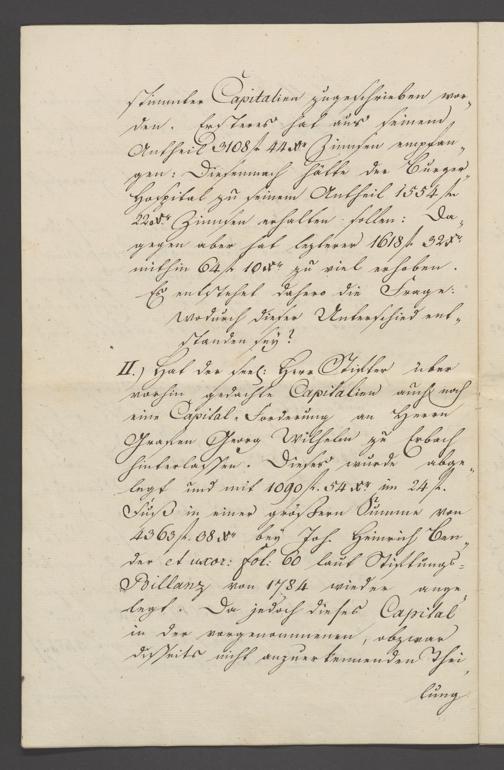 stimmter Capitalien zugeschrieben wor-
den. Ersteres hat aus seinem
Antheil 3108 f. 44 Xr Zinnsen empfan-
gen: Diesemnach hätte der Burger
Hospital zu seinem Antheil 1554 f.
22 Xr. Zinnsen erhalten sollen: Da-
gegen aber hat lezterer 1618 f. 32 Xr
mithin 64 f. 10 Xr zu viel erhoben.
Es entstehet dahero die Frage:
wodurch dieser Unterschied ent-
standen sey?
II.) Hat der seel: Herr Stifter über
vorhin gedachte Capitalien auch noch
eine Capital-Forderung an Herrn
Grafen Georg Wilhelm zu Erbach
hinterlassen. Dieses wurde abge-
legt und mit 1090 f. 54 Xr im 24 f.
Fuß in einer größern Summe von
4363 f. 38 Xr bey Joh. Heinrich Ben-
der et uxor: fol: 60 laut Stiftungs-
Billanz von 1784 wieder ange-
legt. Da jedoch dieses Capital
in der vorgenommenen, obzwar
disseits nicht anzuerkennenden Thei-
lung